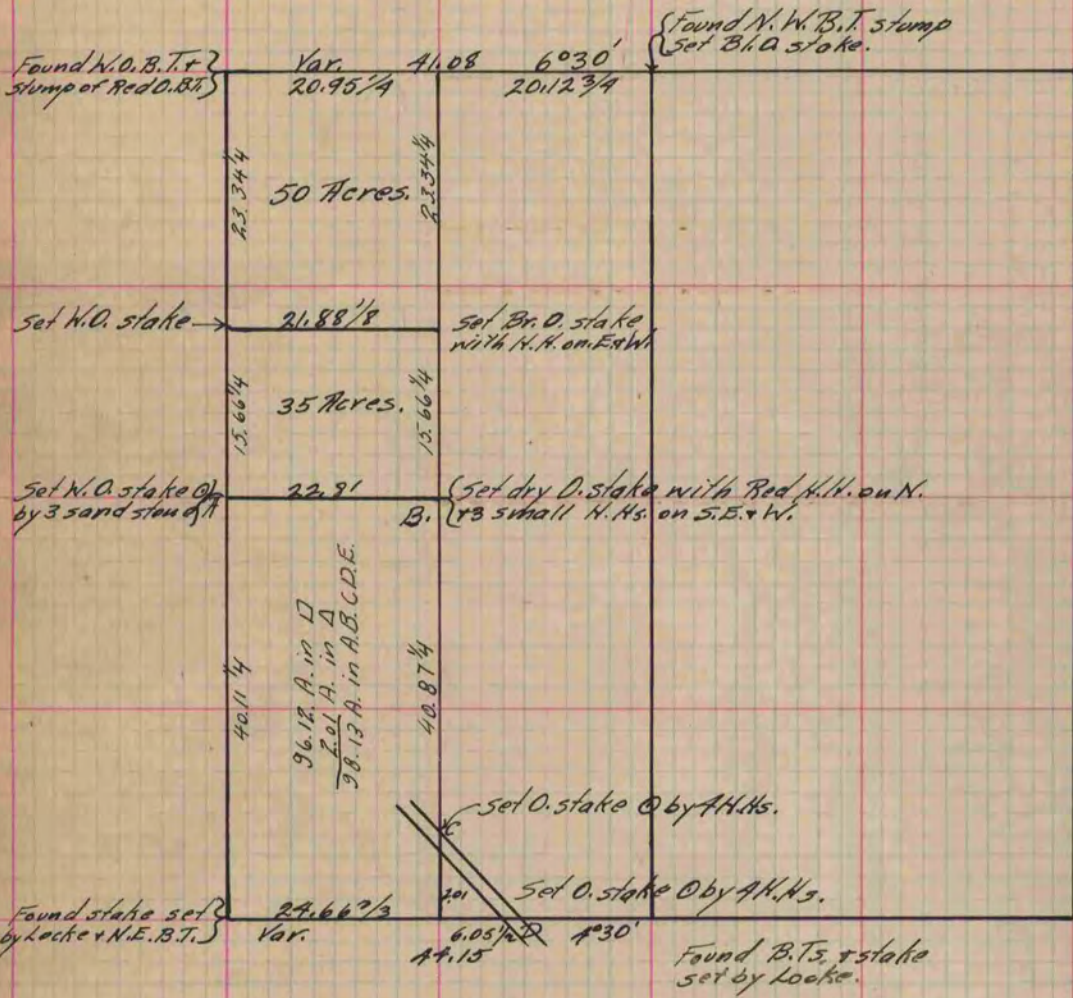 Found N.W.B.T. stump
Set Bl.O stake.
Found W.O.B.T. +
stump of Red O.B.T.
Var. 41.08 6°30'
20.95 1/4 20.12 3/4
23.34 1/4
50 Acres.
23.34 1/4
Set W.O. stake
21.88 1/8
Set Br. O. stake
with H.H. on E.+W.
15.66 1/4
35 Acres.
15.66 1/4
Set W.O. stake ⊙
by 3 sand stone
A
22.81
B.
Set dry O. stake with Red H.H. on N.
+3 small H.Hs. on S.E.+W.
40.11 1/4
96.12. A. in □
2.01 A. in Δ
98.13 A. in A.B.C.D.E.
40.87 1/4
Set O. stake ⊙ by 4 H.Hs.
C
2.01
Set O. stake ⊙ by 4 H.Hs.
Found stake set
by Locke + N.E.B.T.
24.66 2/3
Var. 6.05 1/2 D 4°30'
44.15
Found B.Ts. + stake
set by Locke.